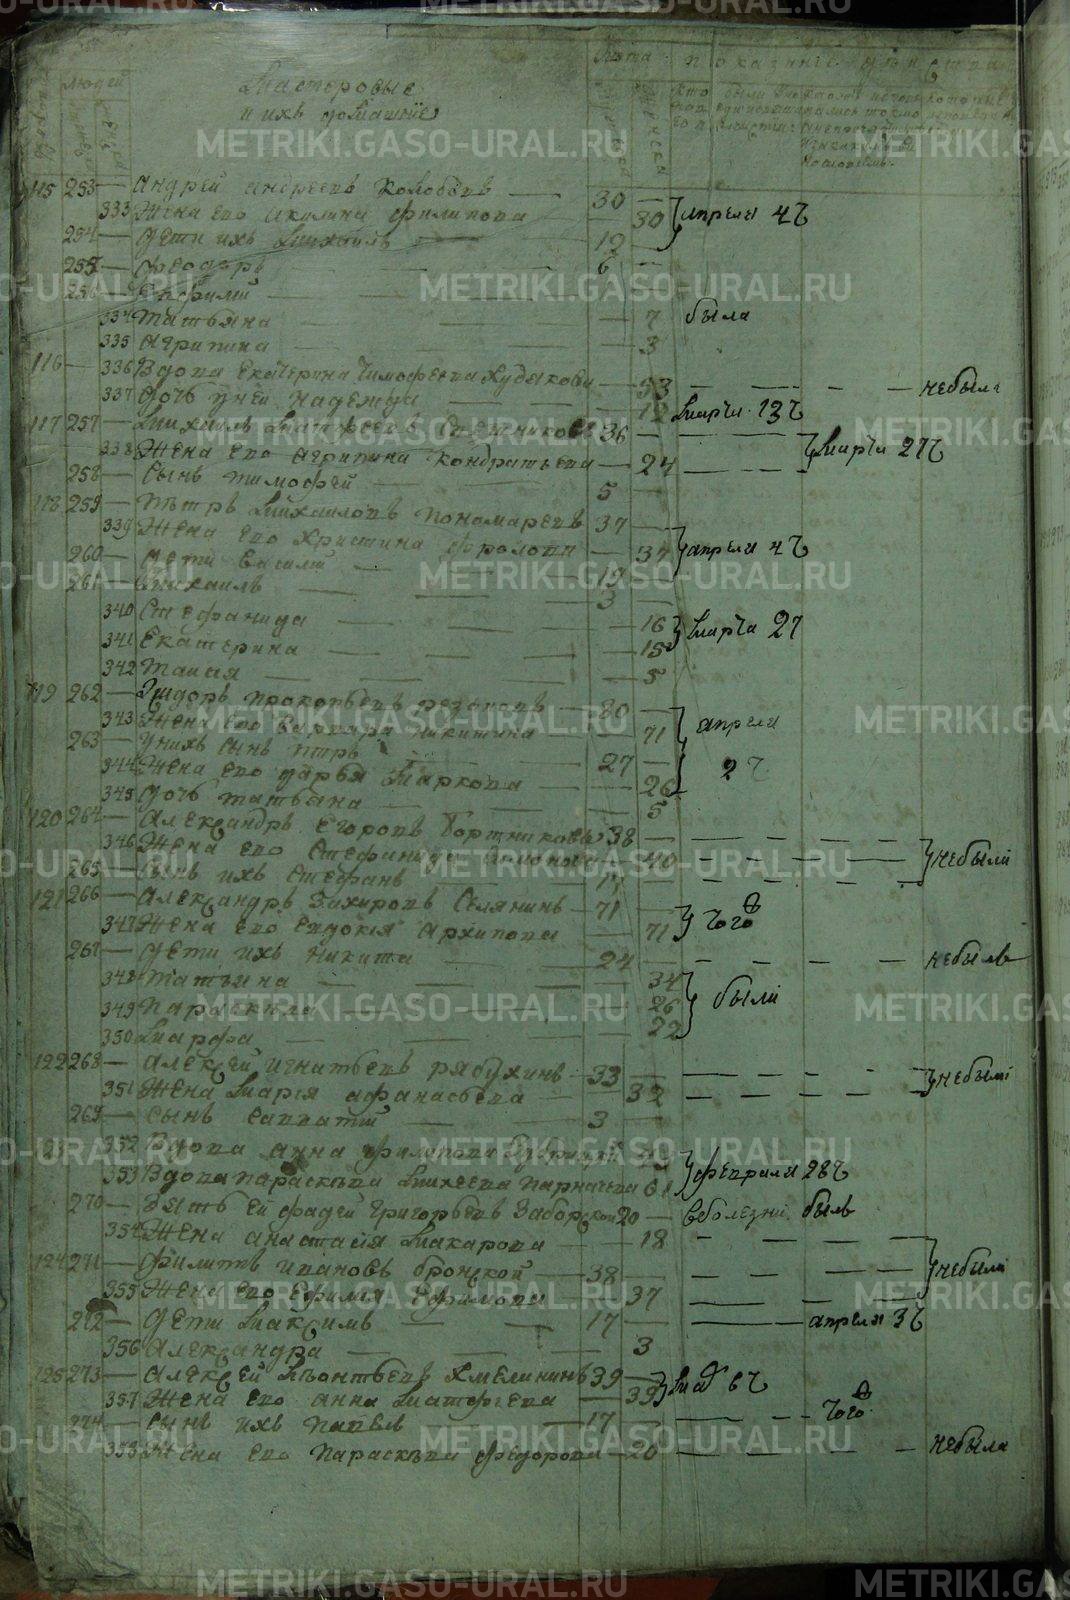 Мастеровые
и ихъ домашнїе
Лѣта показанїе дѣйства
людей
115 253 Андрей Андреевъ Колобовъ 30
333 Жена его Акилина Филипова 30 апреля 4 ч
254 дети ихъ Михаилъ 12
255 Феодоръ 6
256 Ефимий
334 Татьяна 7 была
335 Агрипина 3
116 336 Вдова Екатерина Тимофеева Худякова 53 небыла
337 дочь у ней Надежда 12 марта 13 ч
117 257 Михаилъ Матфеевъ 36 марта 27 ч
338 Жена его Агрипина Кондратьева 24
258 Сынъ Тимофей 5
118 259 Петръ Михаиловъ Пономаревъ 37
339 Жена его Христина Фролова 37 апреля 4 ч
260 дети Василий
261 Михаилъ 3
340 Стефанида 16 марта 27
341 Екатерина 15
342 Таисия 5
119 262 Исидоръ Прокопьевъ Резановъ 80 апреля
343 Жена его Варвара Никитина 71
263 у нихъ Сынъ Птръ 27 2 ч
344 Жена его дарья Маркова 26
345 дочь татьяна 5
120 264 Александръ Егоровъ Бортниковъ 38
346 Жена его Стефанида 40 небыли
265 Сынъ ихъ Стефанъ
121 266 Александръ Захаровъ Селянинъ 71
347 Жена его Евдокїя Архипова 71 того
267 дети ихъ Никита 24 небылъ
348 Татьяна 34
349 Параскева 26 были
350 Марфа 22
122 268 Алексей Игнатьевъ Рябухинъ 33
351 Жена Марїя Афанасьева 32 небыли
269 Сынъ Савватий 3
352 Вдова Анна Филипова
353 Вдова Параскева Михеева Парначева 61 февраля 28 ч
270 Зять ей Фадей Григорьевъ Заборской 20 вболезни былъ
354 Жена Анастасїя Макарова 18
124 271 Филипъ Ивановъ Бронской 38 небыли
355 Жена его Ефимїя Ефимова 37
272 дети Максимъ 17 апреля 3 ч
356 Александра 3
125 273 Алексей Леонтьевъ Хмелининъ 39
357 Жена его Анна Матфеева 39 мар 6 ч
274 Сынъ ихъ Павелъ 17 того
358 Жена его Параскева Федорова 20 небыла
METRIKI.GASO-URAL.RU